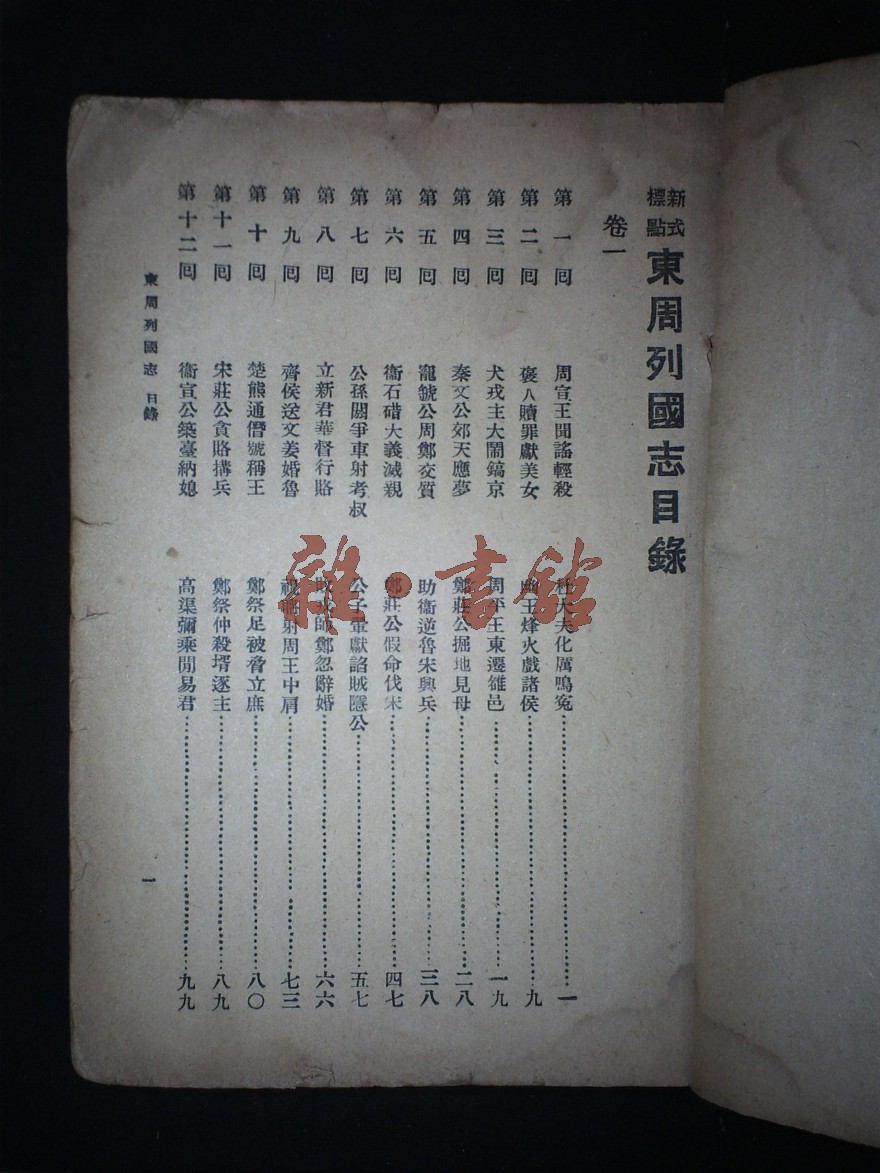 新式標點 東周列國志目錄
卷一
第一回 周宣王聞謠輕殺 杜大夫化厲鳴冤 一
第二回 褒人贖罪獻美女 幽王烽火戲諸侯 九
第三回 犬戎主大鬧鎬京 周平王東遷雒邑 一九
第四回 秦文公郊天應夢 鄭莊公掘地見母 二八
第五回 寵虢公周鄭交質 助衞逆魯宋興兵 三八
第六回 衞石碏大義滅親 鄭莊公假命伐宋 四七
第七回 公孫閼爭車射考叔 公子翬獻諂賊隱公 五七
第八回 立新君華督行賂 敗戎師鄭忽辭婚 六六
第九回 齊侯送文姜婚魯 祝聃射周王中肩 七三
第十回 楚熊通僭號稱王 鄭祭足被脅立庶 八〇
第十一回 宋莊公貪賂搆兵 鄭祭仲殺壻逐主 八九
第十二回 衞宣公築臺納媳 高渠彌乘閒易君 九九
東周列國志 目錄 一
雜·書館